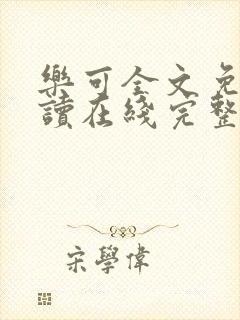 樂可全文免
讀在綫完整
宋學偉